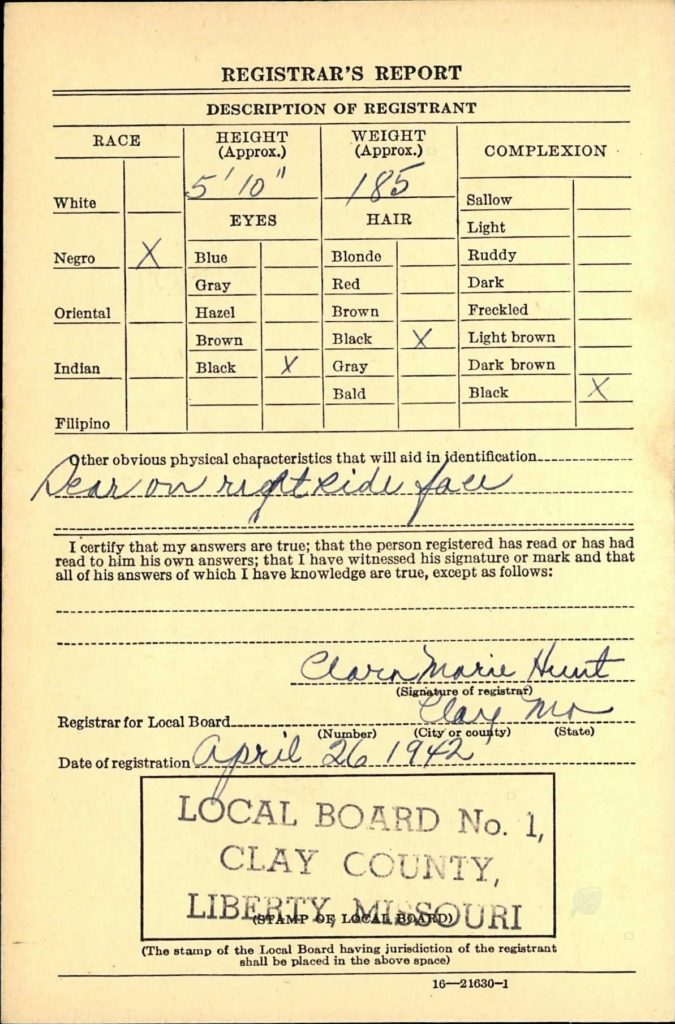 REGISTRAR'S REPORT
DESCRIPTION OF REGISTRANT
RACE
HEIGHT
(Approx.)
WEIGHT
(Approx.)
COMPLEXION
5' 10"
185
White
Negro X
Oriental
Indian
Filipino
EYES
Blue
Gray
Hazel
Brown
Black X
HAIR
Blonde
Red
Brown
Black X
Gray
Bald
Sallow
Light
Ruddy
Dark
Freckled
Light brown
Dark brown
Black X
Other obvious physical characteristics that will aid in identification
on right side face
I certify that my answers are true; that the person registered has read or has had
read to him his own answers; that I have witnessed his signature or mark and that
all of his answers of which I have knowledge are true, except as follows:
Clara Marie Hunt
(Signature of registrar)
Registrar for Local Board Clay Mo
(Number) (City or county) (State)
Date of registration April 26 1942
LOCAL BOARD No. 1,
CLAY COUNTY,
LIBERTY, MISSOURI
(STAMP OF LOCAL BOARD)
(The stamp of the Local Board having jurisdiction of the registrant
shall be placed in the above space)
16—21630-1